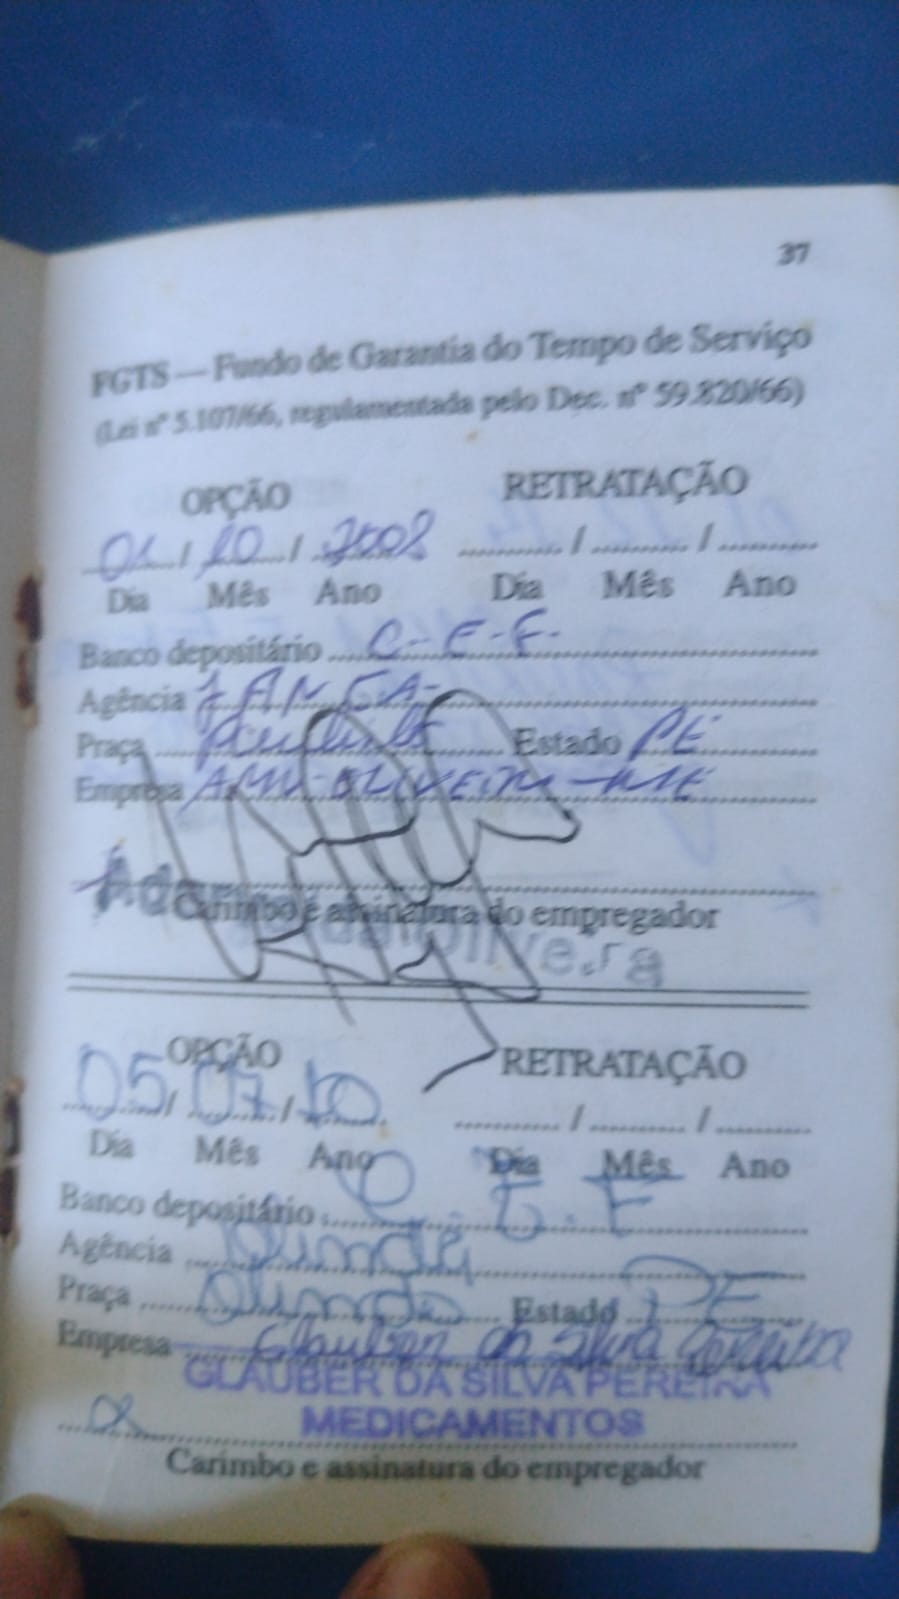 37
FGTS — Fundo de Garantia do Tempo de Serviço
(Lei nº 5.107/66, regulamentada pelo Dec. nº 59.820/66)
OPÇÃO RETRATAÇÃO
01 / 10 / 2008 ............ / ............ / ............
Dia Mês Ano Dia Mês Ano
Banco depositário C-E-F-
Agência
Praça Paulista Estado PE
Empresa OLIVEIRA-ME
Carimbo e assinatura do empregador
Oliveira
OPÇÃO RETRATAÇÃO
05 / 07 / 10 ............ / ............ / ............
Dia Mês Ano Dia Mês Ano
Banco depositário C.E.F
Agência Olinda
Praça Olinda Estado PE
Empresa Glauber da Silva Pereira
GLAUBER DA SILVA PEREIRA
MEDICAMENTOS
Carimbo e assinatura do empregador